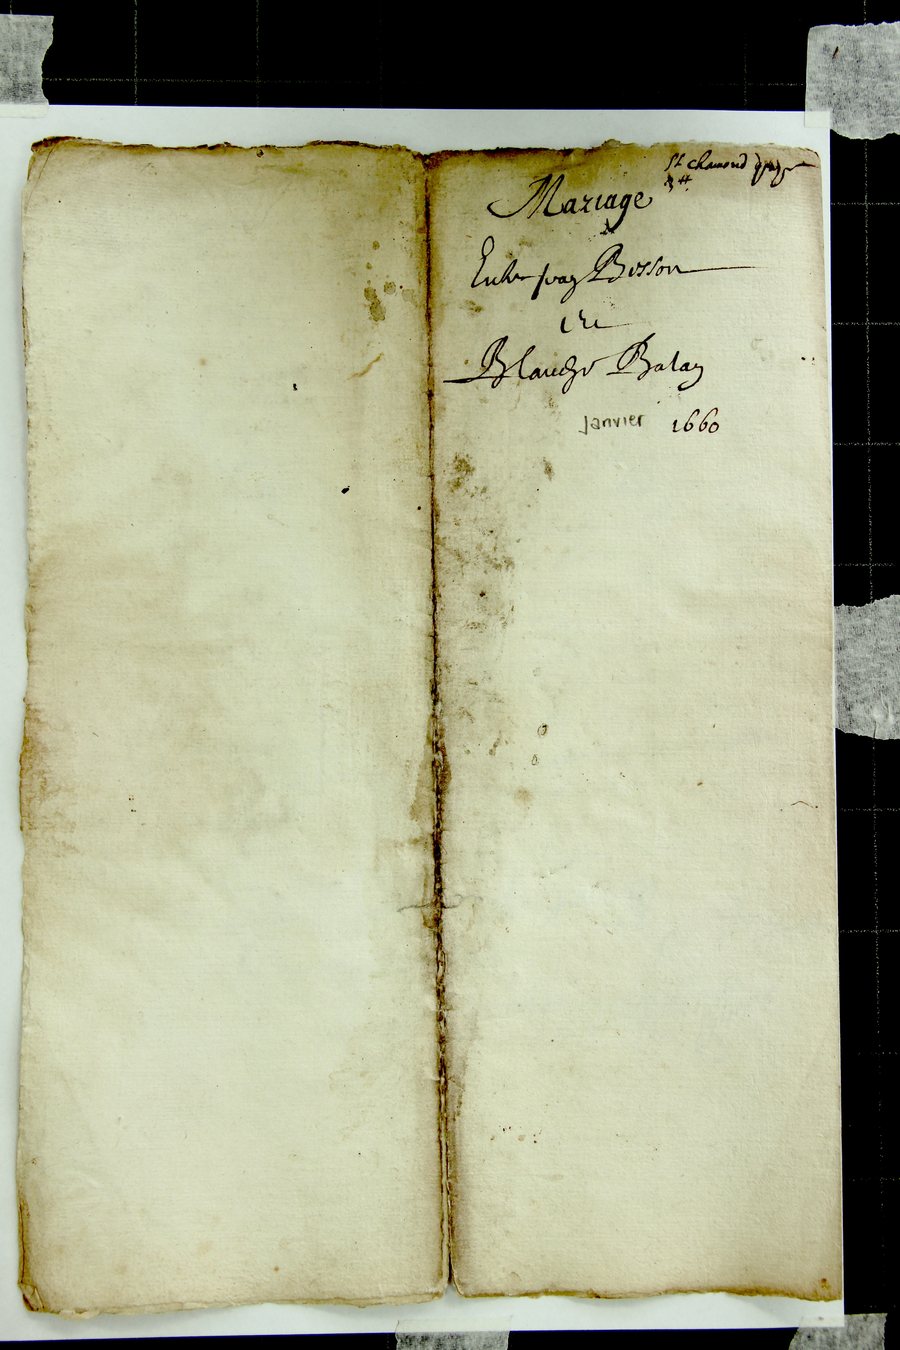 St chamond
Mariage
Entre Jean Bisson
Et
Blanche Balay
Janvier 1660